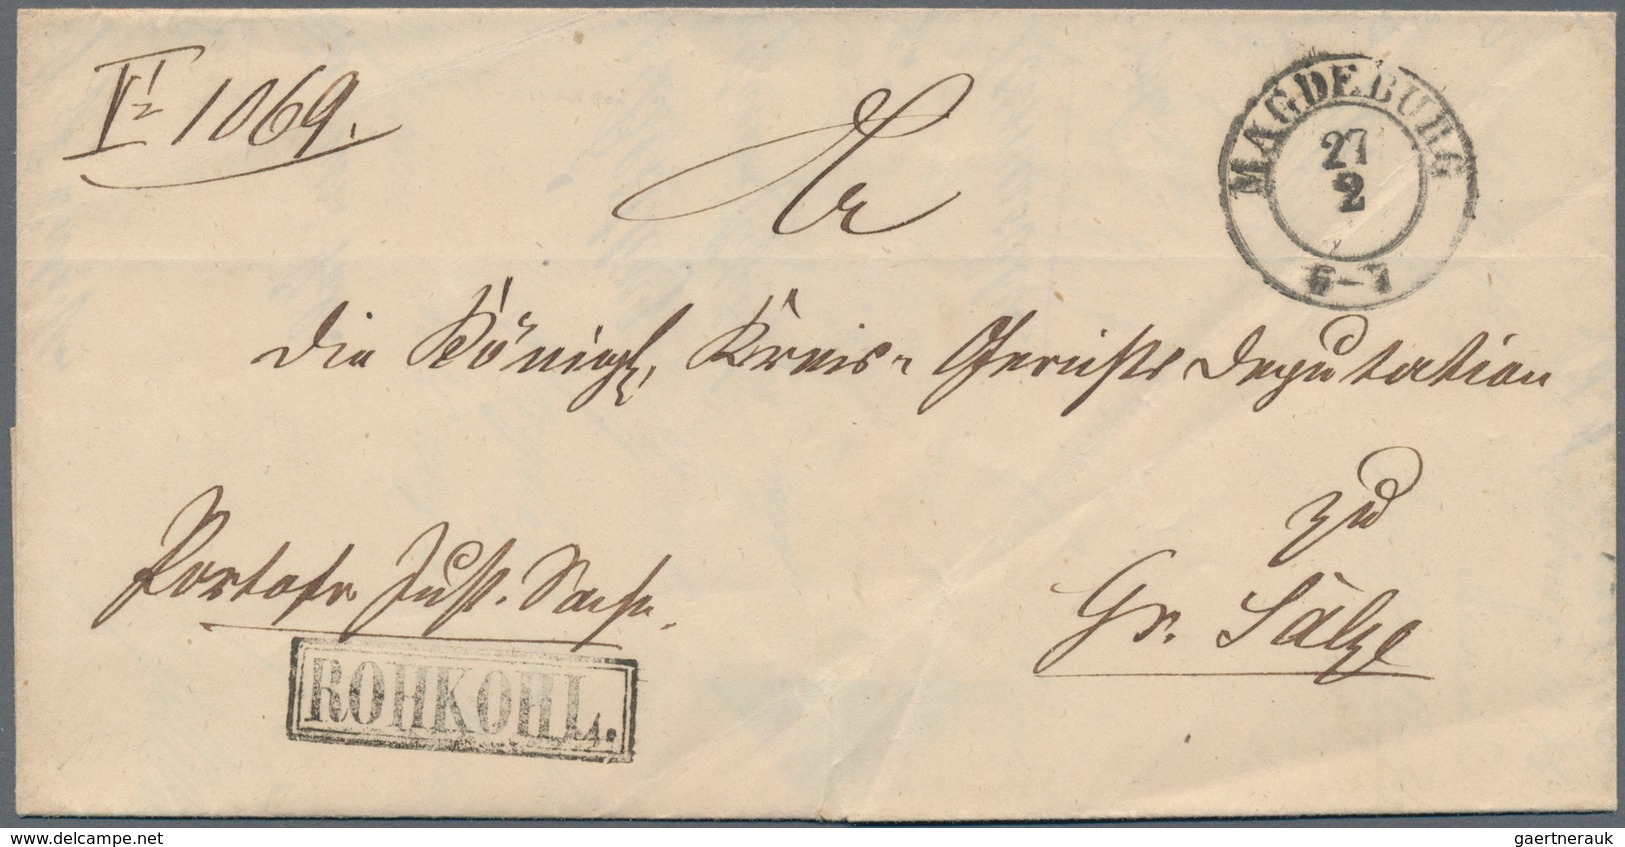 VI 1069.
MAGDEBURG
27
2
6-7
An
die Königl. Kreis- Gerichts Deputation
zu
Gr. Sälze
Portofr. Just. Sache.
ROHKOHL.
www.delcampe.net
gaertnerauk